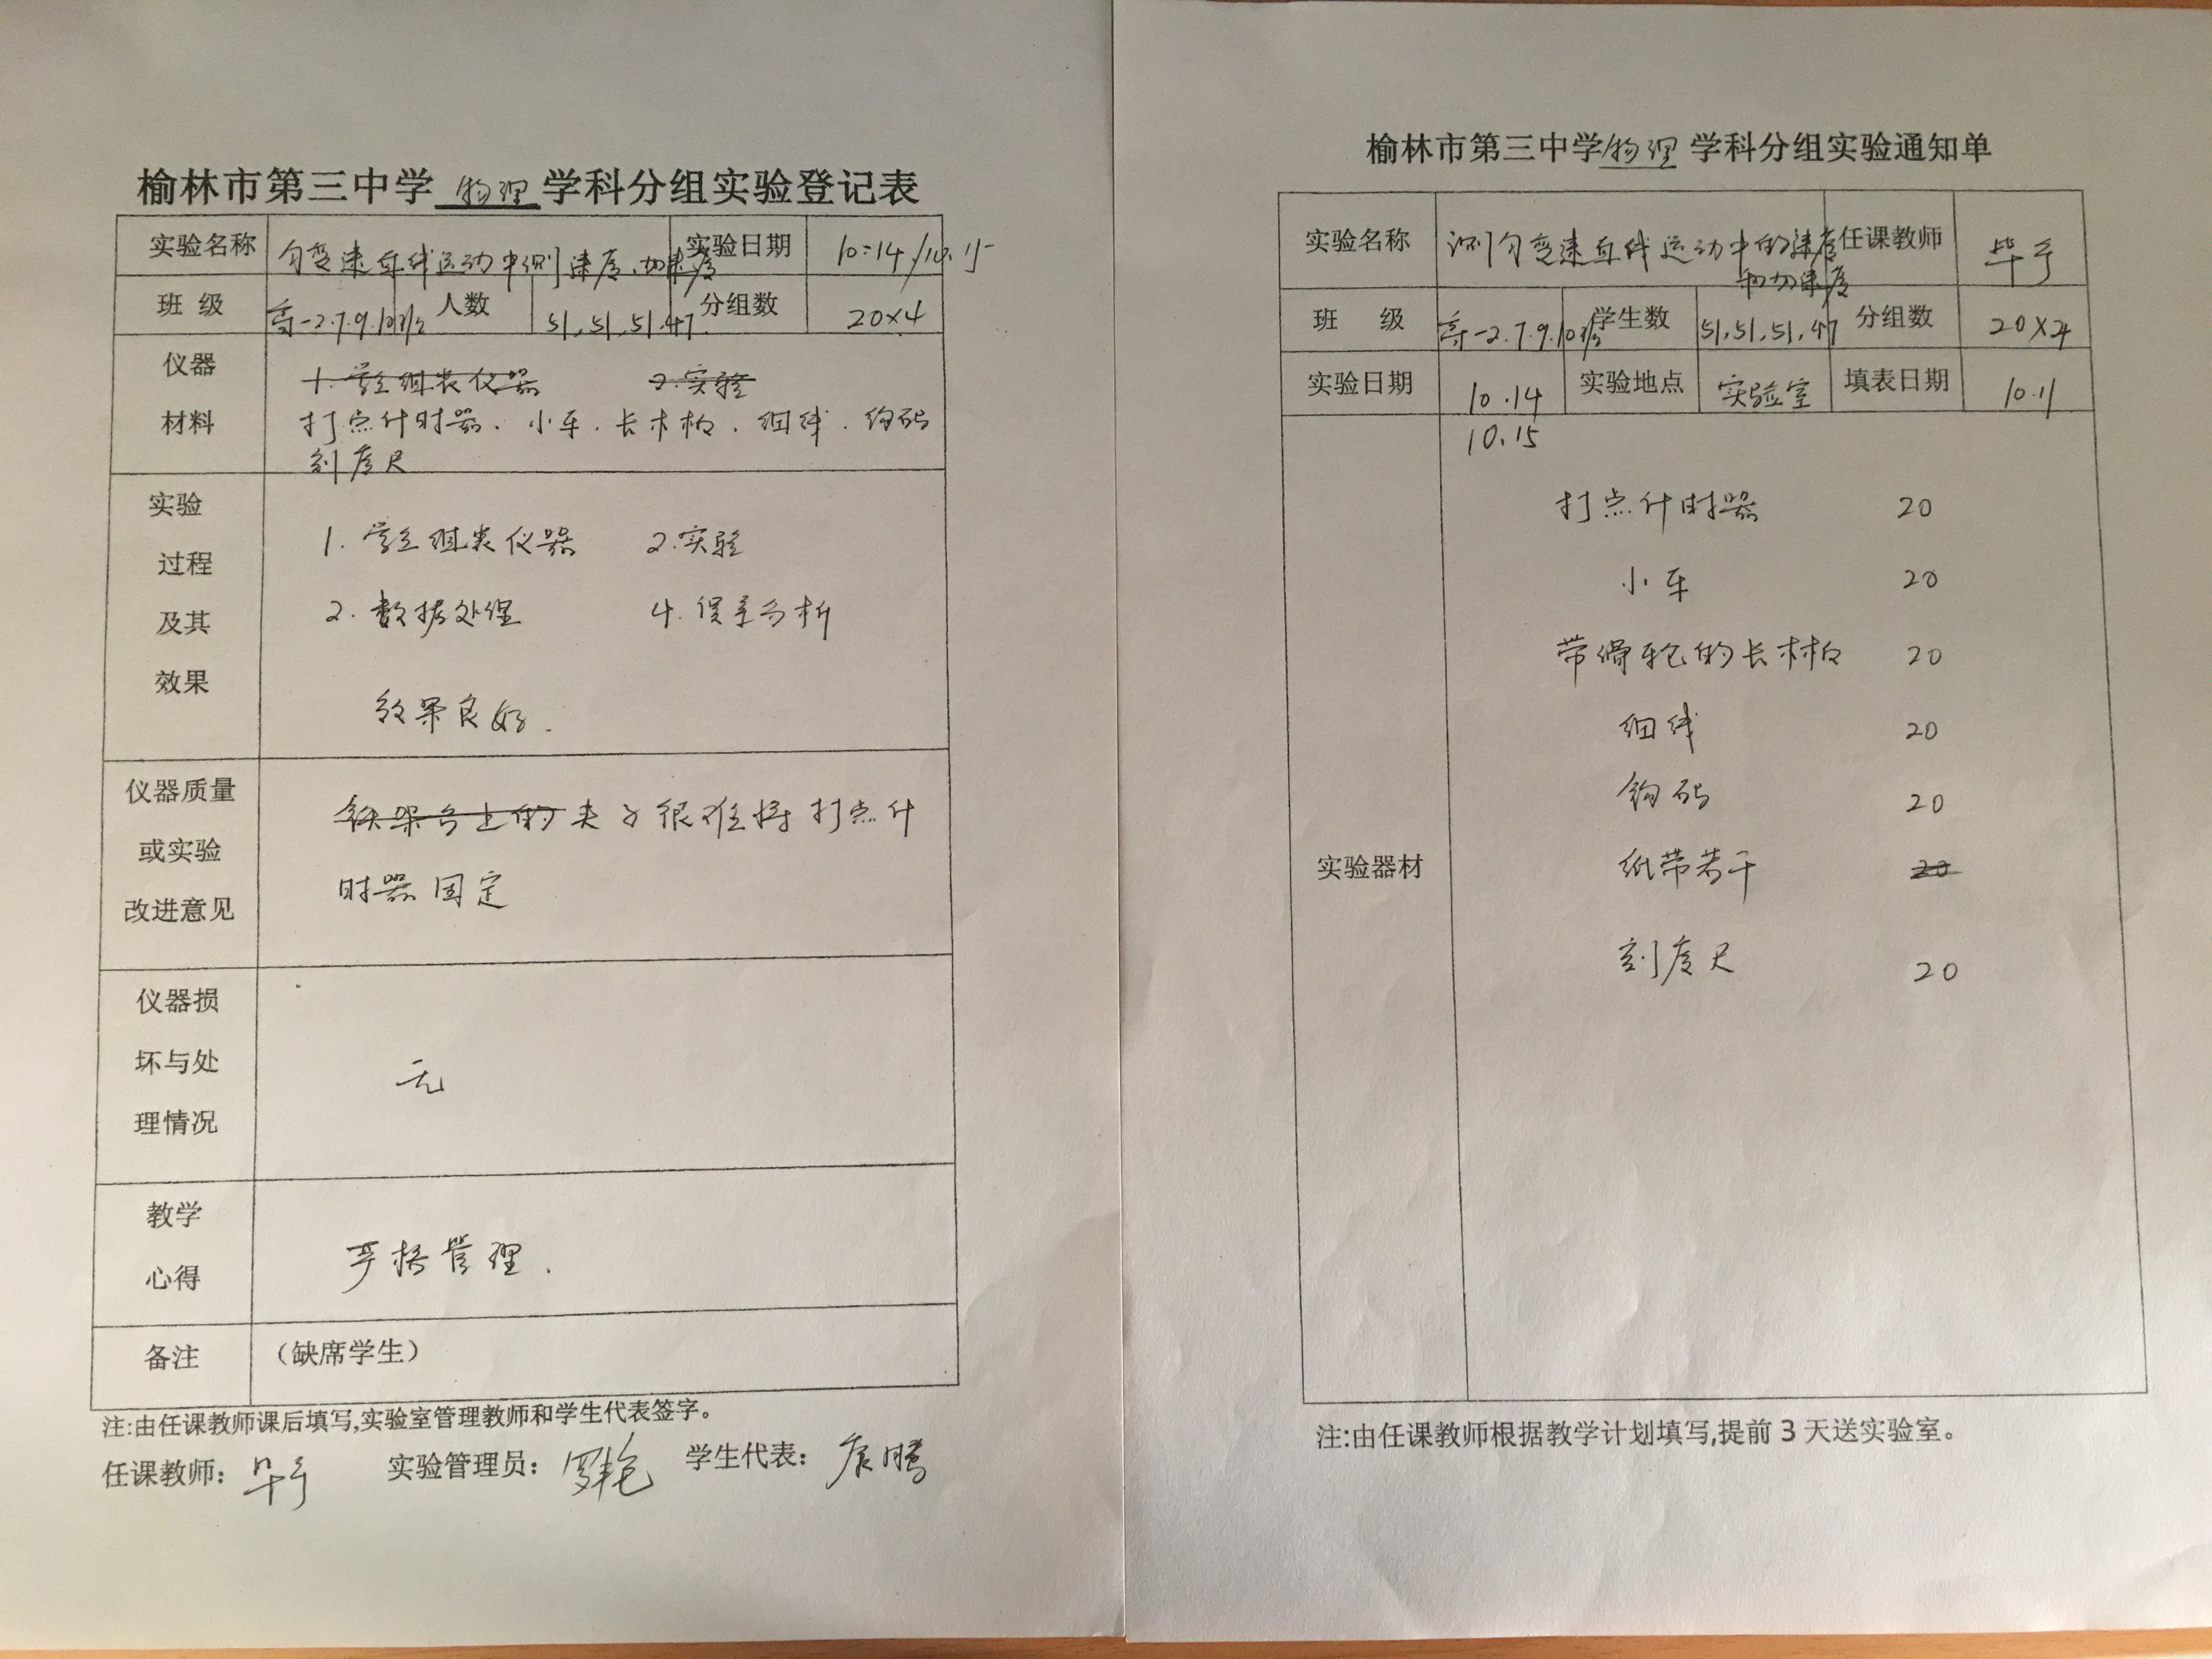 榆林市第三中学 物理 学科分组实验登记表
实验名称 匀变速直线运动中测速度、加速度 实验日期 10.14/10.15
班 级 高一2.7.9.10班 人数 51,51,51,47 分组数 20×4
仪器 1. 学生组装仪器 2.实验
材料 打点计时器. 小车. 长木板. 细线. 钩码
刻度尺
实验
过程 1. 学生组装仪器 2.实验
及其 2. 数据处理 4. 误差分析
效果
效果良好.
仪器质量 铁架台上的夹子很难将打点计
或实验
改进意见 时器固定
仪器损
坏与处 无
理情况
教学
心得 严格管理.
备注 （缺席学生）
注:由任课教师课后填写,实验室管理教师和学生代表签字。
任课教师: 实验管理员: 学生代表:
榆林市第三中学 物理 学科分组实验通知单
实验名称 测匀变速直线运动中的速度 任课教师
和加速度
班 级 高一2.7.9.10班 学生数 51,51,51,47 分组数 20×4
实验日期 10.14 实验地点 实验室 填表日期 10.11
10.15
打点计时器 20
小车 20
带滑轮的长木板 20
细线 20
钩码 20
实验器材 纸带若干 20
刻度尺 20
注:由任课教师根据教学计划填写,提前 3 天送实验室。